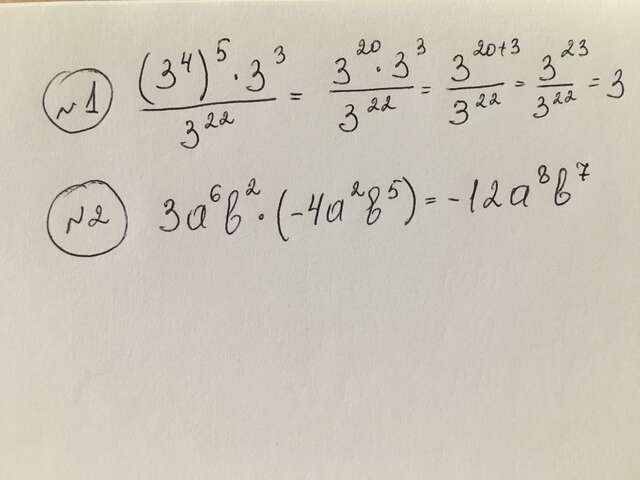 №1 (3^4)^5 · 3^3 / 3^22 = 3^20 · 3^3 / 3^22 = 3^20+3 / 3^22 = 3^23 / 3^22 = 3
№2 3a^6b^2 · (-4a^2b^5) = -12a^8b^7